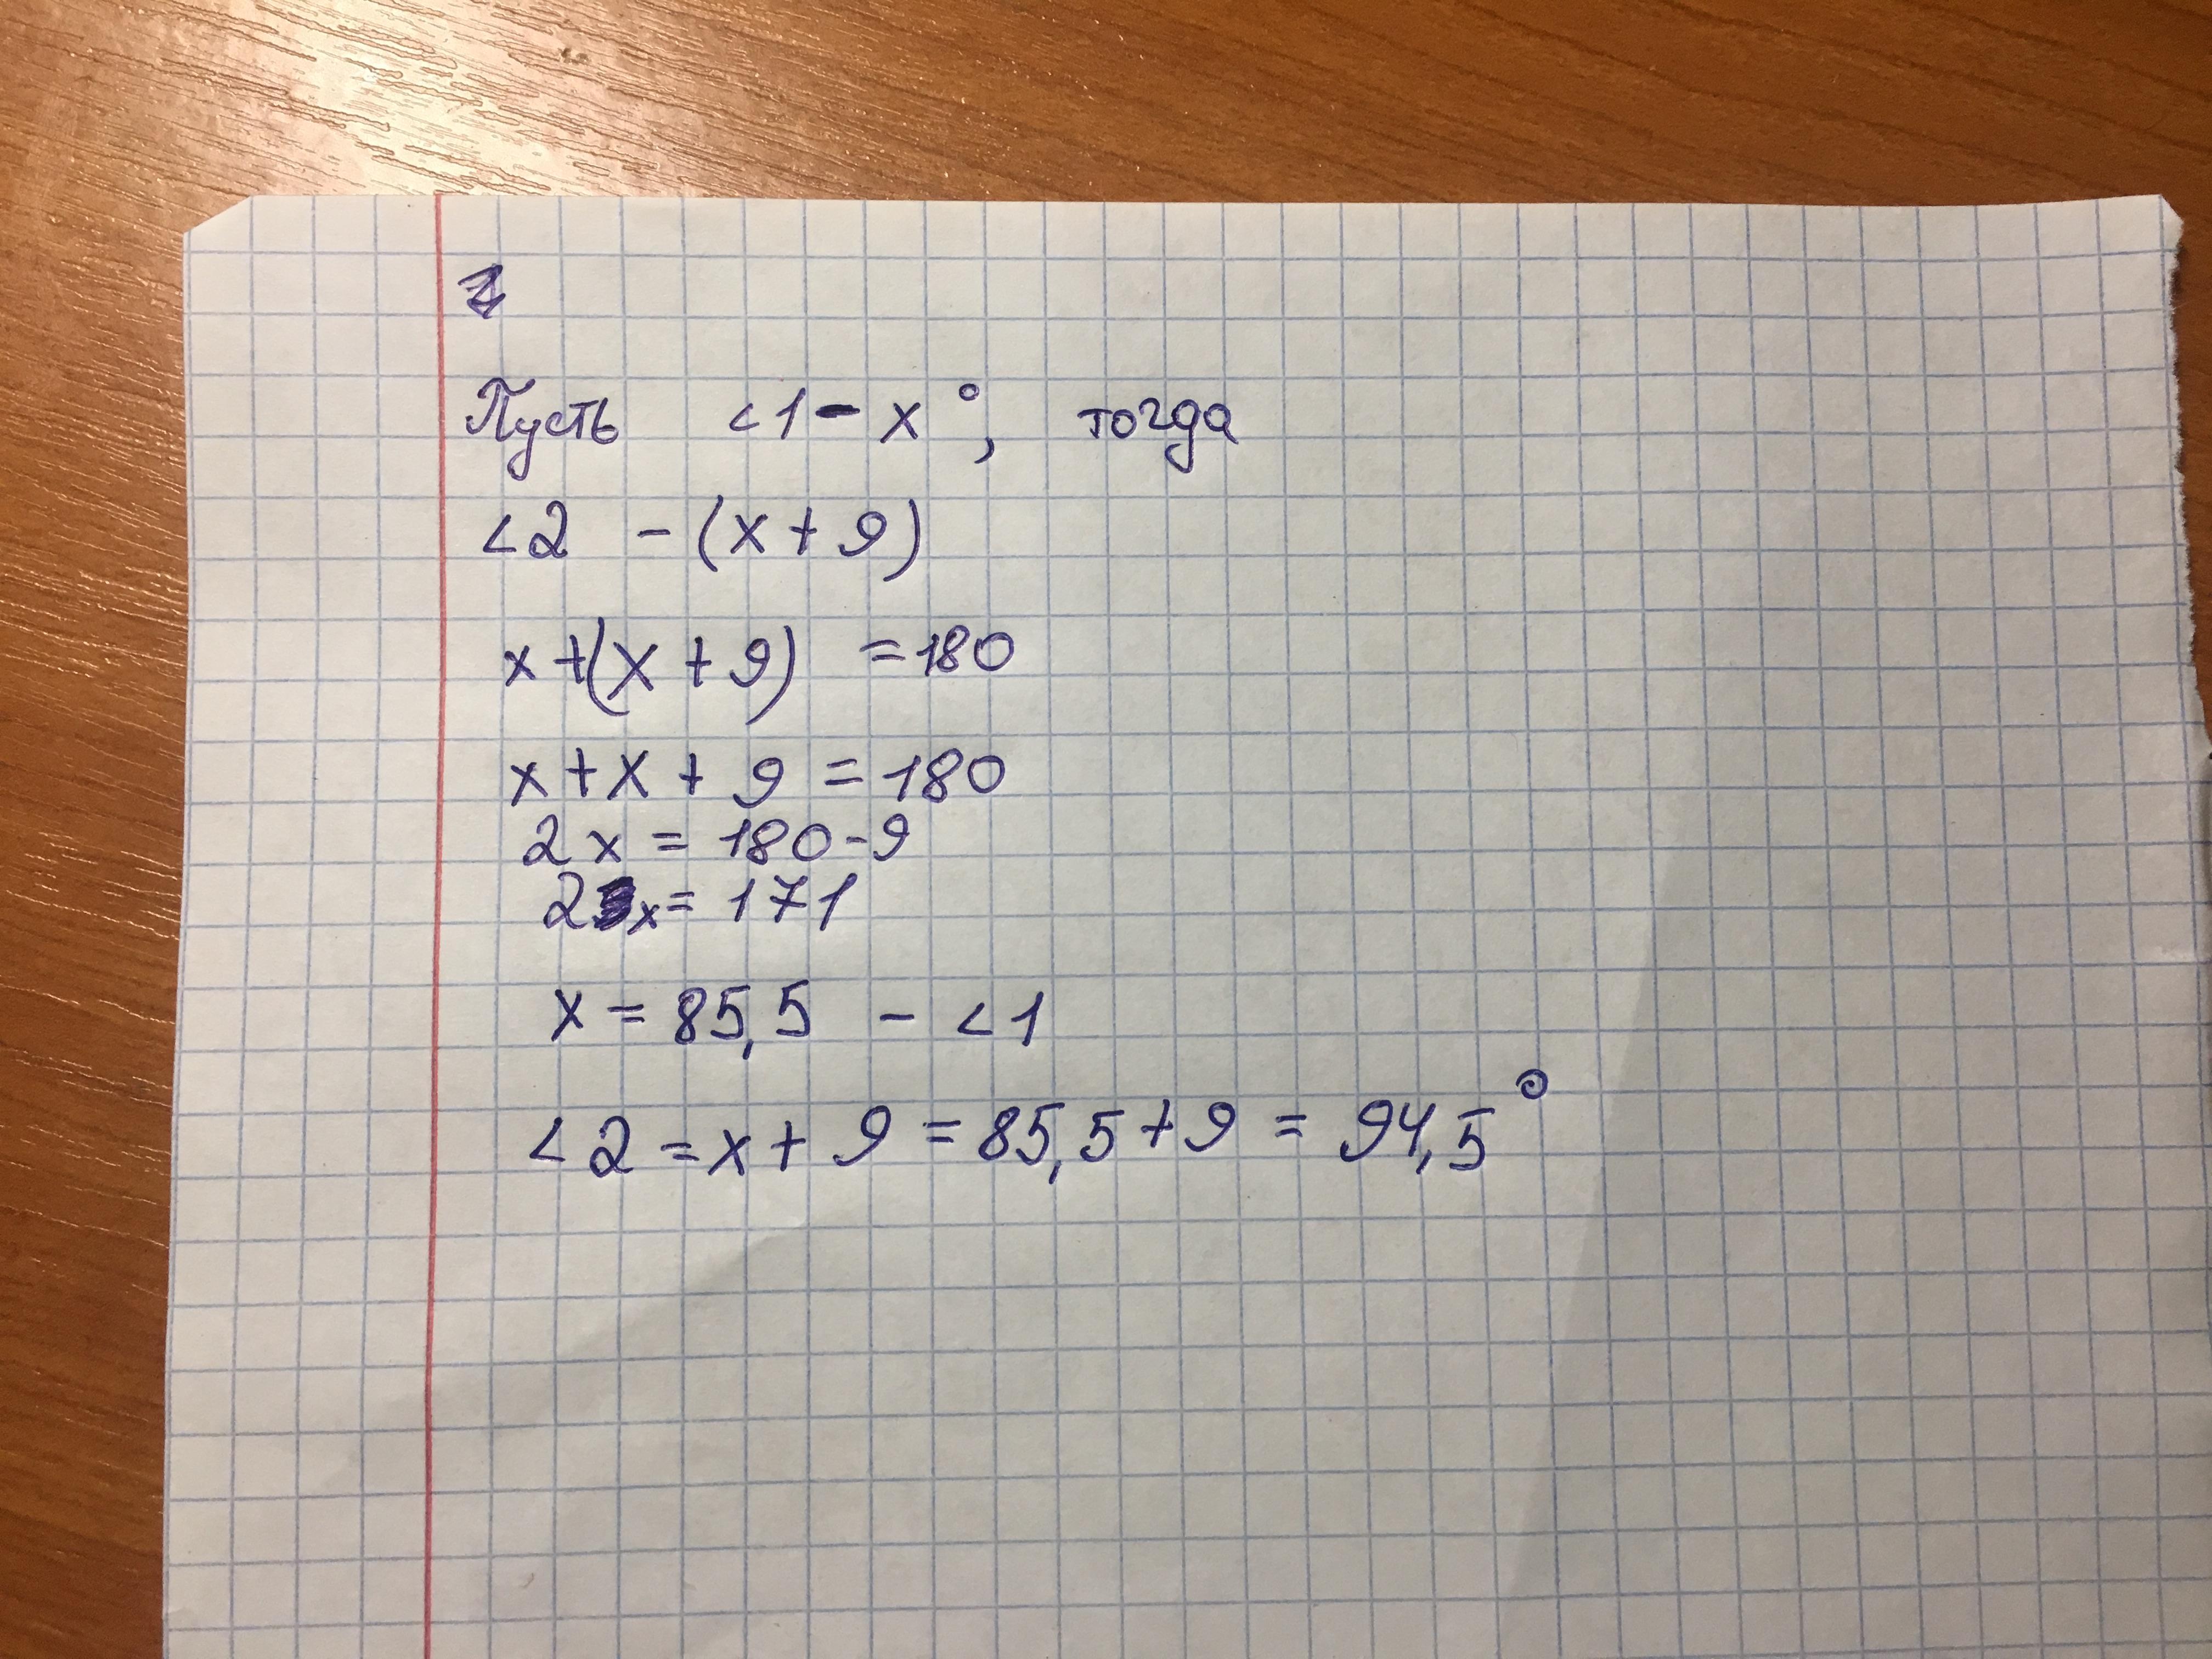 Пусть <1 - x°, тогда
<2 - (x + 9)
x + (x + 9) = 180
x + x + 9 = 180
2x = 180 - 9
2x = 171
x = 85,5 - <1
<2 = x + 9 = 85,5 + 9 = 94,5°